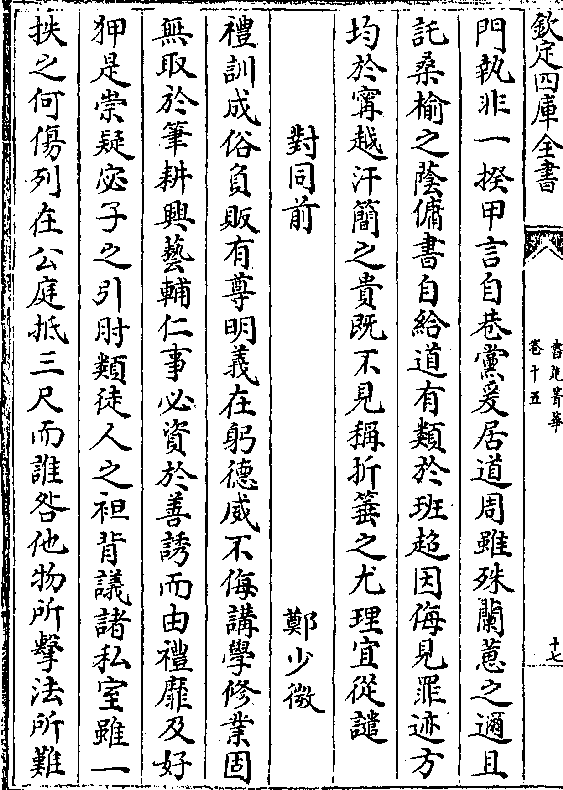 欽定四庫全書
書苑菁華
卷十五
十七
門執非一揆甲言自巷黨爰居道周雖殊蘭蕙之邇且
託桑榆之蔭傭書自給道有類於班超因侮見罪迹方
均於甯越汗簡之貴既不見稱折箠之尤理宜從譴
對同前
鄭少微
禮訓成俗負販有尊明義在躬德威不侮講學修業固
無取於筆耕興藝輔仁事必資於善誘而由禮靡及好
狎是崇疑宓子之引肘類徒人之袒背議諸私室雖一
抶之何傷列在公庭抵三尺而誰咎他物所擊法所難